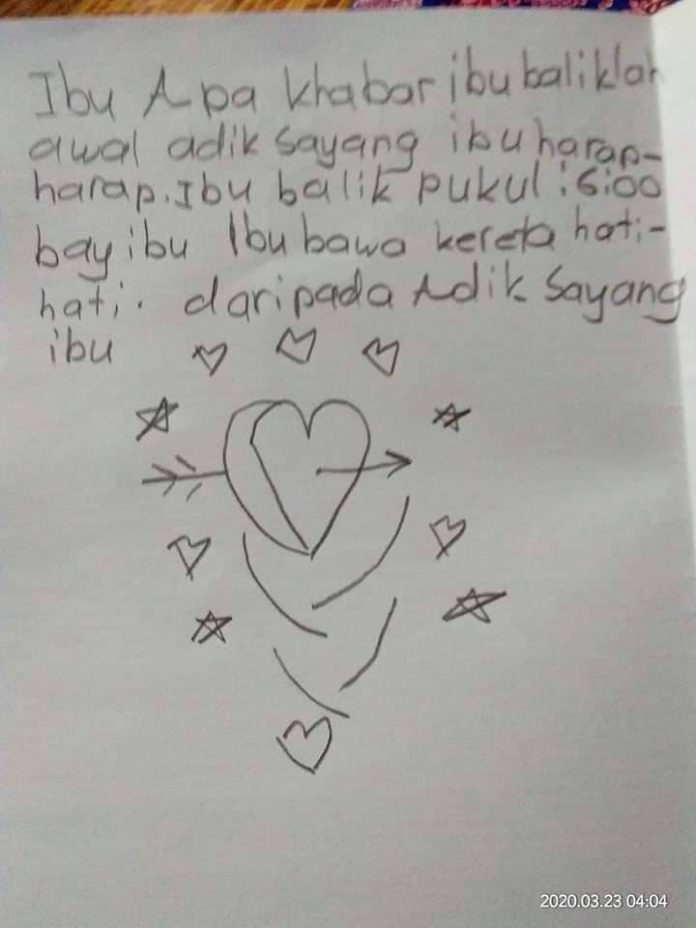 Ibu Apa khabar ibu baliklah
awal adik sayang ibu harap-
harap. Ibu balik pukul : 6:00
bay ibu Ibu bawa kereta hati-
hati. daripada Adik Sayang
ibu
2020.03.23 04:04